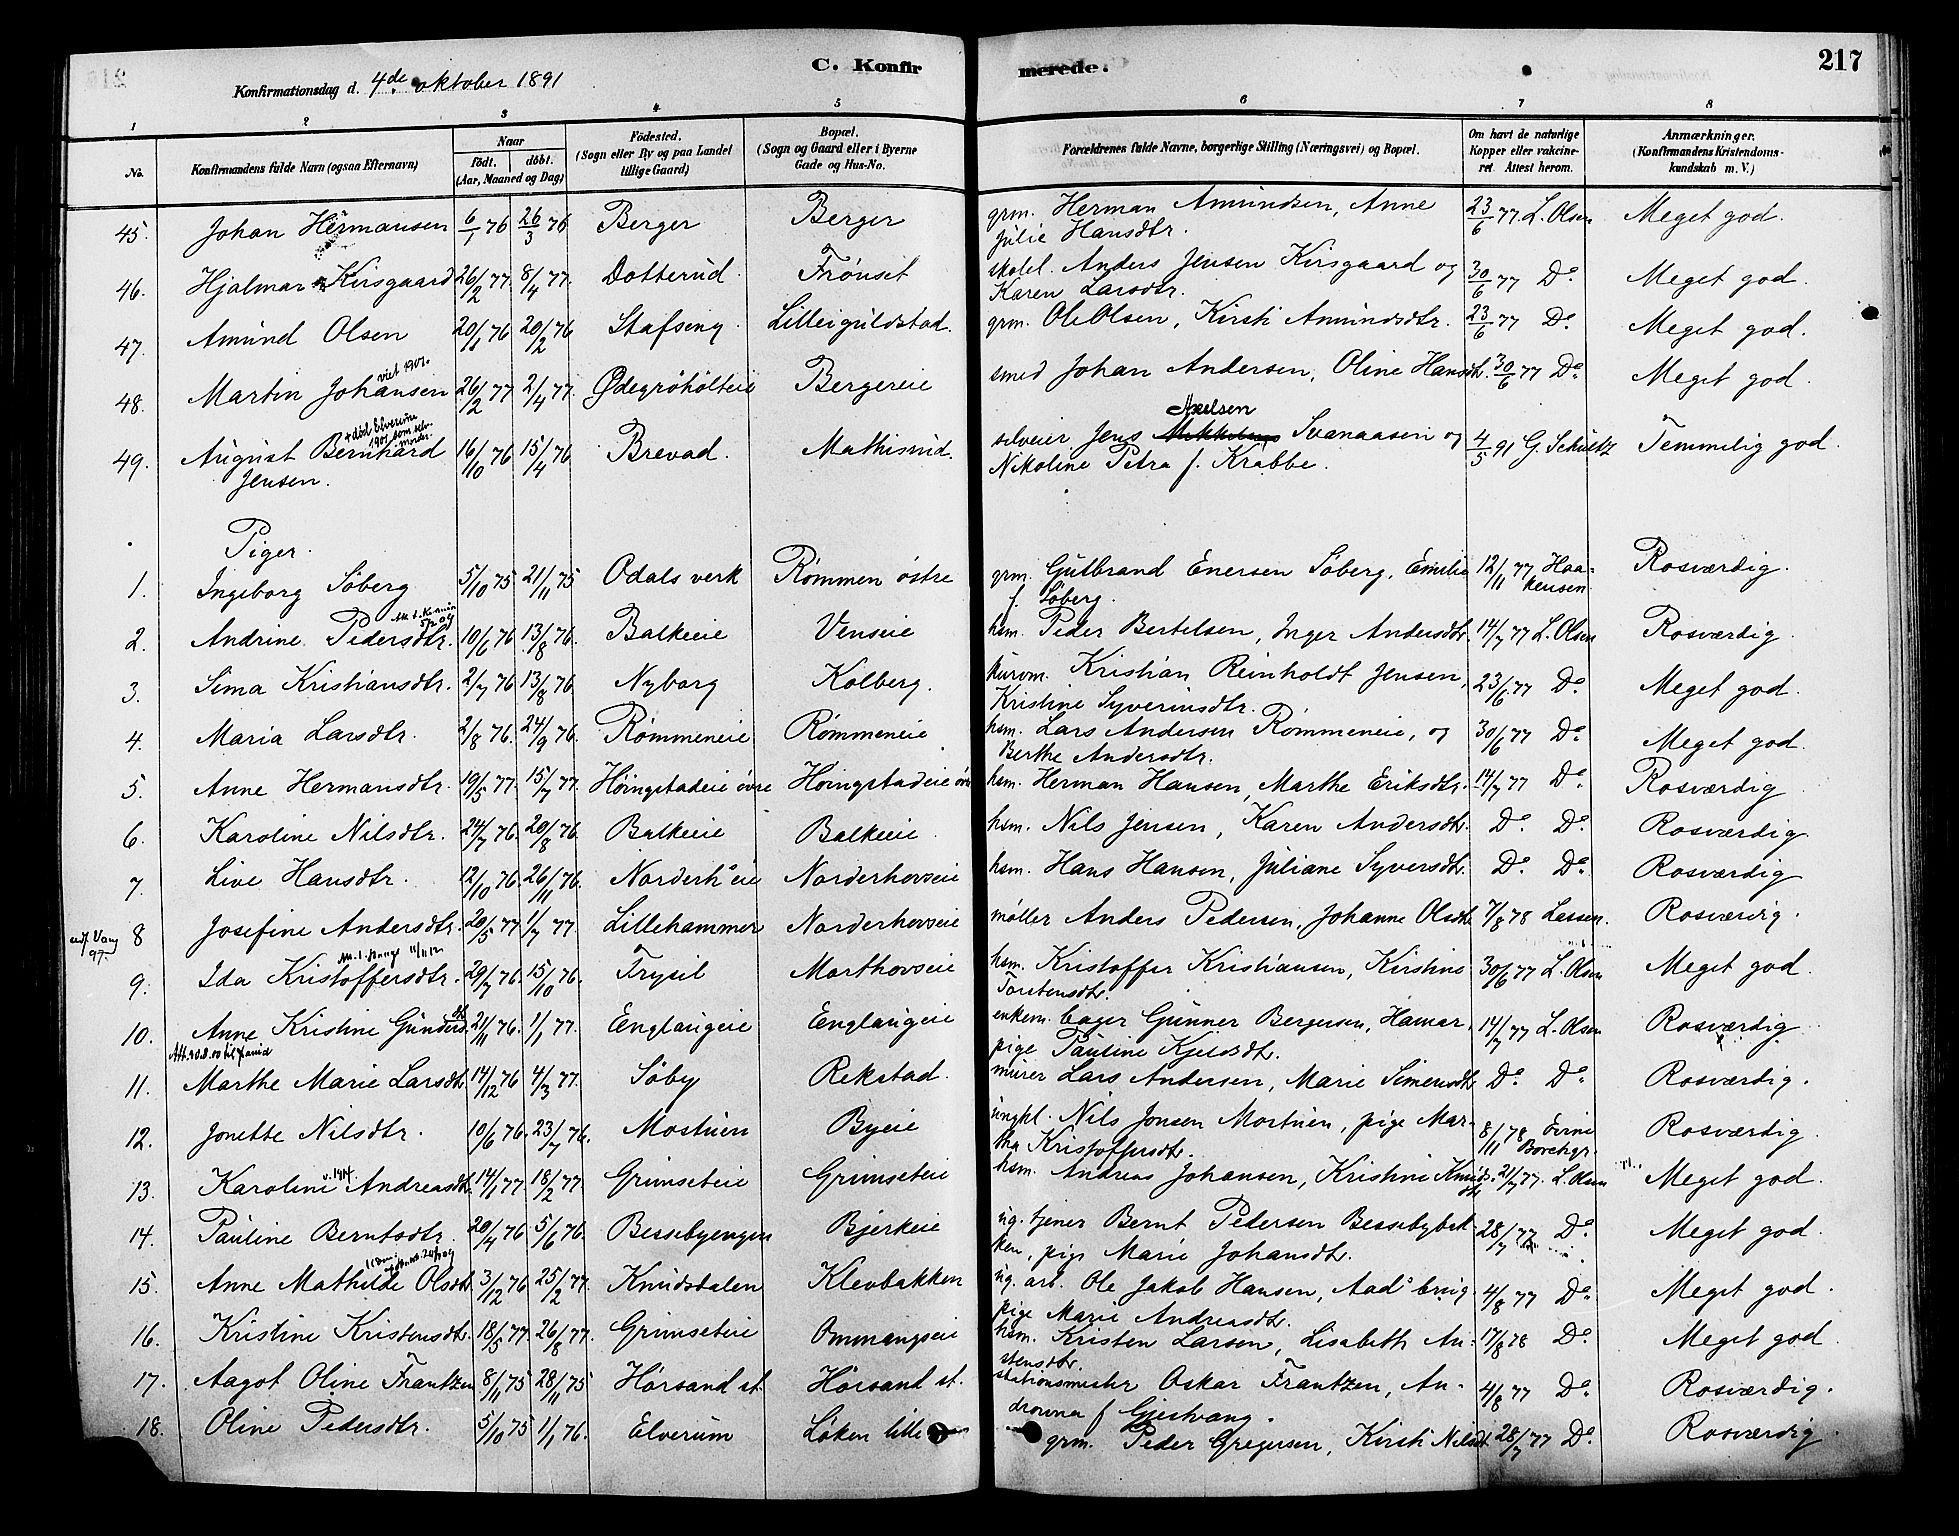 217
C. Konfirmerede.
Konfirmationsdag d. 4de oktober 1891
1 2 3 4 5 6 7 8
No. Konfirmandens fulde Navn (ogsaa Efternavn) Naar födt. döbt. (Aar, Maaned og Dag) Födested. (Sogn eller By og paa Landet tillige Gaard) Bopæl. (Sogn og Gaard eller i Byerne Gade og Hus-No. Forældrenes fulde Navne, borgerlige Stilling (Næringsvei) og Bopæl. Om havt de naturlige Kopper eller vakcineret. Attest herom. Anmærkninger. (Konfirmandens Kristendomskundskab m. V.)
45. Johan Hermansen 6/1 76 26/3 76 Berger Berger grm. Herman Amundsen, Anne Julie Hansdtr. 23/6 77 L. Olsen Meget god.
46. Hjalmar Kirsgaard 26/2 77. 8/4 77. Dotterud. Frønset skolel. Anders Jensen Kirsgaard og Karen Larsdtr. 30/6 77 Do. Meget god.
47. Amund Olsen 20/1 76 20/2 76 Stafseng. Lilleiguldstad. grm. Ole Olsen, Kirsti Amundsdtr. 23/6 77 Do. Meget god.
48. Martin Johansen viet 1901. 26/2 77 2/4 77. Ødegrøholteie Bergereie smed Johan Andersen, Oline Hansdtr. 30/6 77 Do. Meget god.
49. August Bernhard Jensen. + død Elverum 1901 som selvmorder. 16/10 76 15/4 76 Brevad. Mathisrud. selveier Jens Axelsen Svanaasen og Nikoline Petra f. Krabbe. 4/5 91 G. Schultz Temmelig god.
Piger.
1. Ingeborg Søberg 5/10 75 21/11 75 Odals verk Rømmen østre grm. Gulbrand Enersen Søberg, Emilie f. Søberg. 12/11 77 Haakensen Rosværdig.
2. Andrine Pedersdtr. 10/6 76. 13/8 76. Balkeie Venseie hsm. Peder Bertelsen, Inger Andersdtr. 14/7 77 L. Olsen Rosværdig.
3. Sima Kristiansdtr. 2/7 76 13/8 76. Nyborg Kolberg. kurvm. Kristian Reinholdt Jensen, Kristine Syverinsdtr. 23/6 77 Do. Meget god.
4. Maria Larsdtr. 2/8 76. 24/9 76. Rømmeneie Rømmeneie hsm. Lars Andersen Rømmeneie, og Berthe Andersdtr. 30/6 77 Do. Meget god.
5. Anne Hermansdtr. 19/5 77. 15/7 77. Høingstadeie øvre Høingstadeie øvr hsm. Herman Hansen, Marthe Eriksdtr. 14/7 77 Do. Rosværdig
6. Karoline Nilsdtr. 24/7 76. 20/8 76. Balkeie Balkeie. hsm. Nils Jensen, Karen Andersdtr. Do. Do. Rosværdig.
7. Live Hansdtr. 12/10 76. 26/11 76. Norderh.eie Norderhovseie hsm. Hans Hansen, Juliane Syversdtr. Do. Do. Rosværdig
8 Josefine Andersdtr. 20/5 77 1/7 77. Lillehammer Norderhovseie møller Anders Pedersen, Johanne Olsdtr 7/8 78 Lassen. Rosværdig.
9. Ida Kristoffersdtr. 29/7 76. 15/10 76. Trysil Morthovseie hsm. Kristoffer Kristiansen, Kirstine Torstensdtr. 30/6 77 L. Olsen Meget god.
10. Anne Kristine Gundersdtr. 21/11 76. 1/1 77. Englaugeie Englaugeie enkem. bager Gunner Bergersen, Hamar, pige Pauline Kjelsdtr. 14/7 77 L. Olsen Rosværdig.
11. Marthe Marie Larsdtr. 14/12 76 4/3 77. Søby Rekstad. murer Lars Andersen, Marie Simensdtr Do. Do. Rosværdig.
12. Jonette Nilsdtr. 10/6 76. 23/7 76. Mostuen Byeie ungkl. Nils Jonsen Mostuen, pige Martha Kristoffersdtr. 8/11 78 Borchgr. Rosværdig.
13. Karoline Andreasdtr. v. 1914 14/1 77. 18/2 77. Grimseteie Grimseteie hsm. Andreas Johansen, Kristine Knudsdtr. 21/7 77. L. Olsen Meget god.
14. Pauline Berntsdtr. 20/4 76 5/6 76. Bessebyengen Bjerkeie ug. tjener Bernt Pedersen Bessebybakken, pige Marie Johansdtr. 28/7 77 Do. Meget god.
15. Anne Mathilde Olsdtr 3/12 76 25/2 77. Knudsdalen Klevbakken ug. arb. Ole Jakob Hansen, Aads brug pige Marie Andreasdtr. 4/8 77 Do. Meget god.
16. Kristine Kristensdtr. 18/5 77. 26/8 77. Grimseteie Ommangseie hsm. Kristen Larsen, Lisabeth Austensdtr. 17/8 78 Do. Meget god
17. Aagot Oline Frantzen 8/11 75 28/11 75 Hørsand st. Hørsand st. stationsmester Oskar Frantzen, Androvna f. Gjestvang. 4/8 77 Do. Rosværdig.
18. Oline Pedersdtr. 5/10 75 1/1 76. Elverum Løken lille grm. Peder Gregersen, Kirsti Nilsdt 28/7 77 Do. Rosværdig.